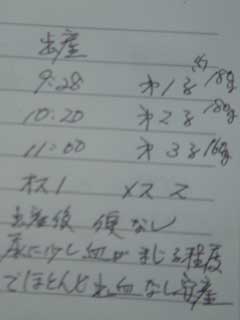 出産
9:28 オ1子 約180g
10:20 オ2子 180g
11:00 オ3子 160g
オス1 メス2
出産後 便なし
尿に少し血がまじる程度
でほとんど出血なし安産